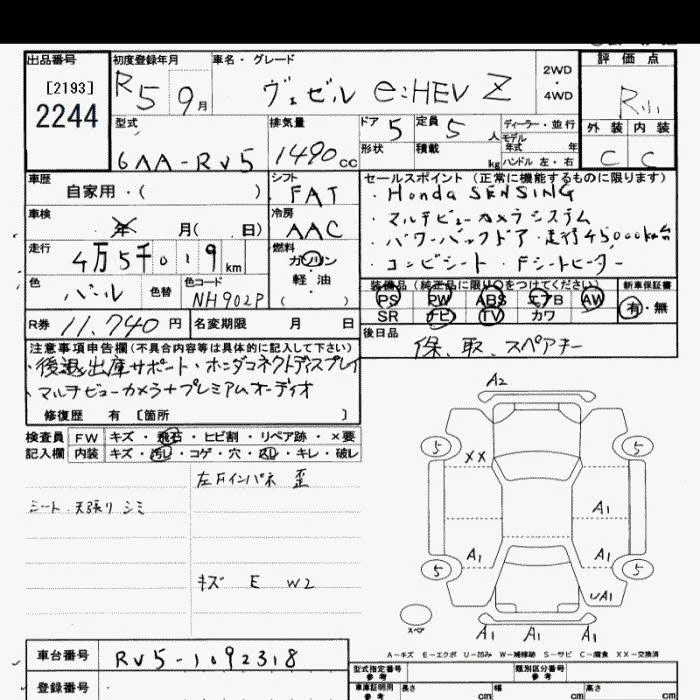 出品番号
[2193]
2244
初度登録年月
R5 9月
車名・グレード
ヴェゼル e:HEV Z
2WD
・
4WD
評価点
R
外装 内装
C C
型式
6AA-RV5
排気量
1490cc
ドア 5
定員 5人
形状
積載 kg
ディーラー・並行
モデル年式 年
ハンドル 左・右
車歴
自家用・( )
シフト
FAT
車検
年 月( 日)
冷房
AAC
走行
4万5千019km
燃料
ガソリン
・
軽油
( )
色
パール
色替
色コード
NH902P
R券 11,740円
名変期限 月 日
セールスポイント(正常に機能するものに限ります)
・Honda SENSING
・マルチビューカメラシステム
・パワーバックドア・走行45000km台
・コンビシート・Fシートヒーター
装備品(純正品に限り○をつけてください)
PS PW ABS エアB AW
SR ナビ TV カワ
新車保証書
有・無
後日品
保、取、スペアキー
注意事項申告欄(不具合内容等は具体的に記入して下さい)
・後退出庫サポート・ホンダコネクトディスプレイ
・マルチビューカメラ+プレミアムオーディオ
修復歴 有 〔箇所 〕
検査員記入欄
FW キズ・飛石・ヒビ割・リペア跡・×要
内装 キズ・汚レ・コゲ・穴・スレ・キレ・破レ
左Fインパネ 歪
シート・天張り シミ
キズ E W2
A2
5 5
XX
A1
A1 A1
5 5
UA1
スペア
A1 A1 A1
A-キズ E-エクボ U-凹み W-補修跡 S-サビ C-腐食 XX-交換済
車台番号
RV5-1092318
登録番号
型式指定番号
参考
類別区分番号
参考
車庫証明用
参考
長さ cm
幅 cm
高さ cm